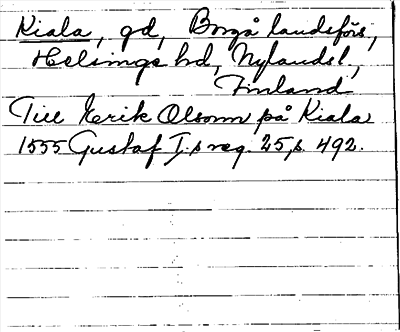 Kiala, gd, Borgå landsförs,
Helsinge hd, Nylandsl.,
Finland
Till Erik Olsonn på Kiala
1555 Gustaf I.s reg. 25, s. 492.